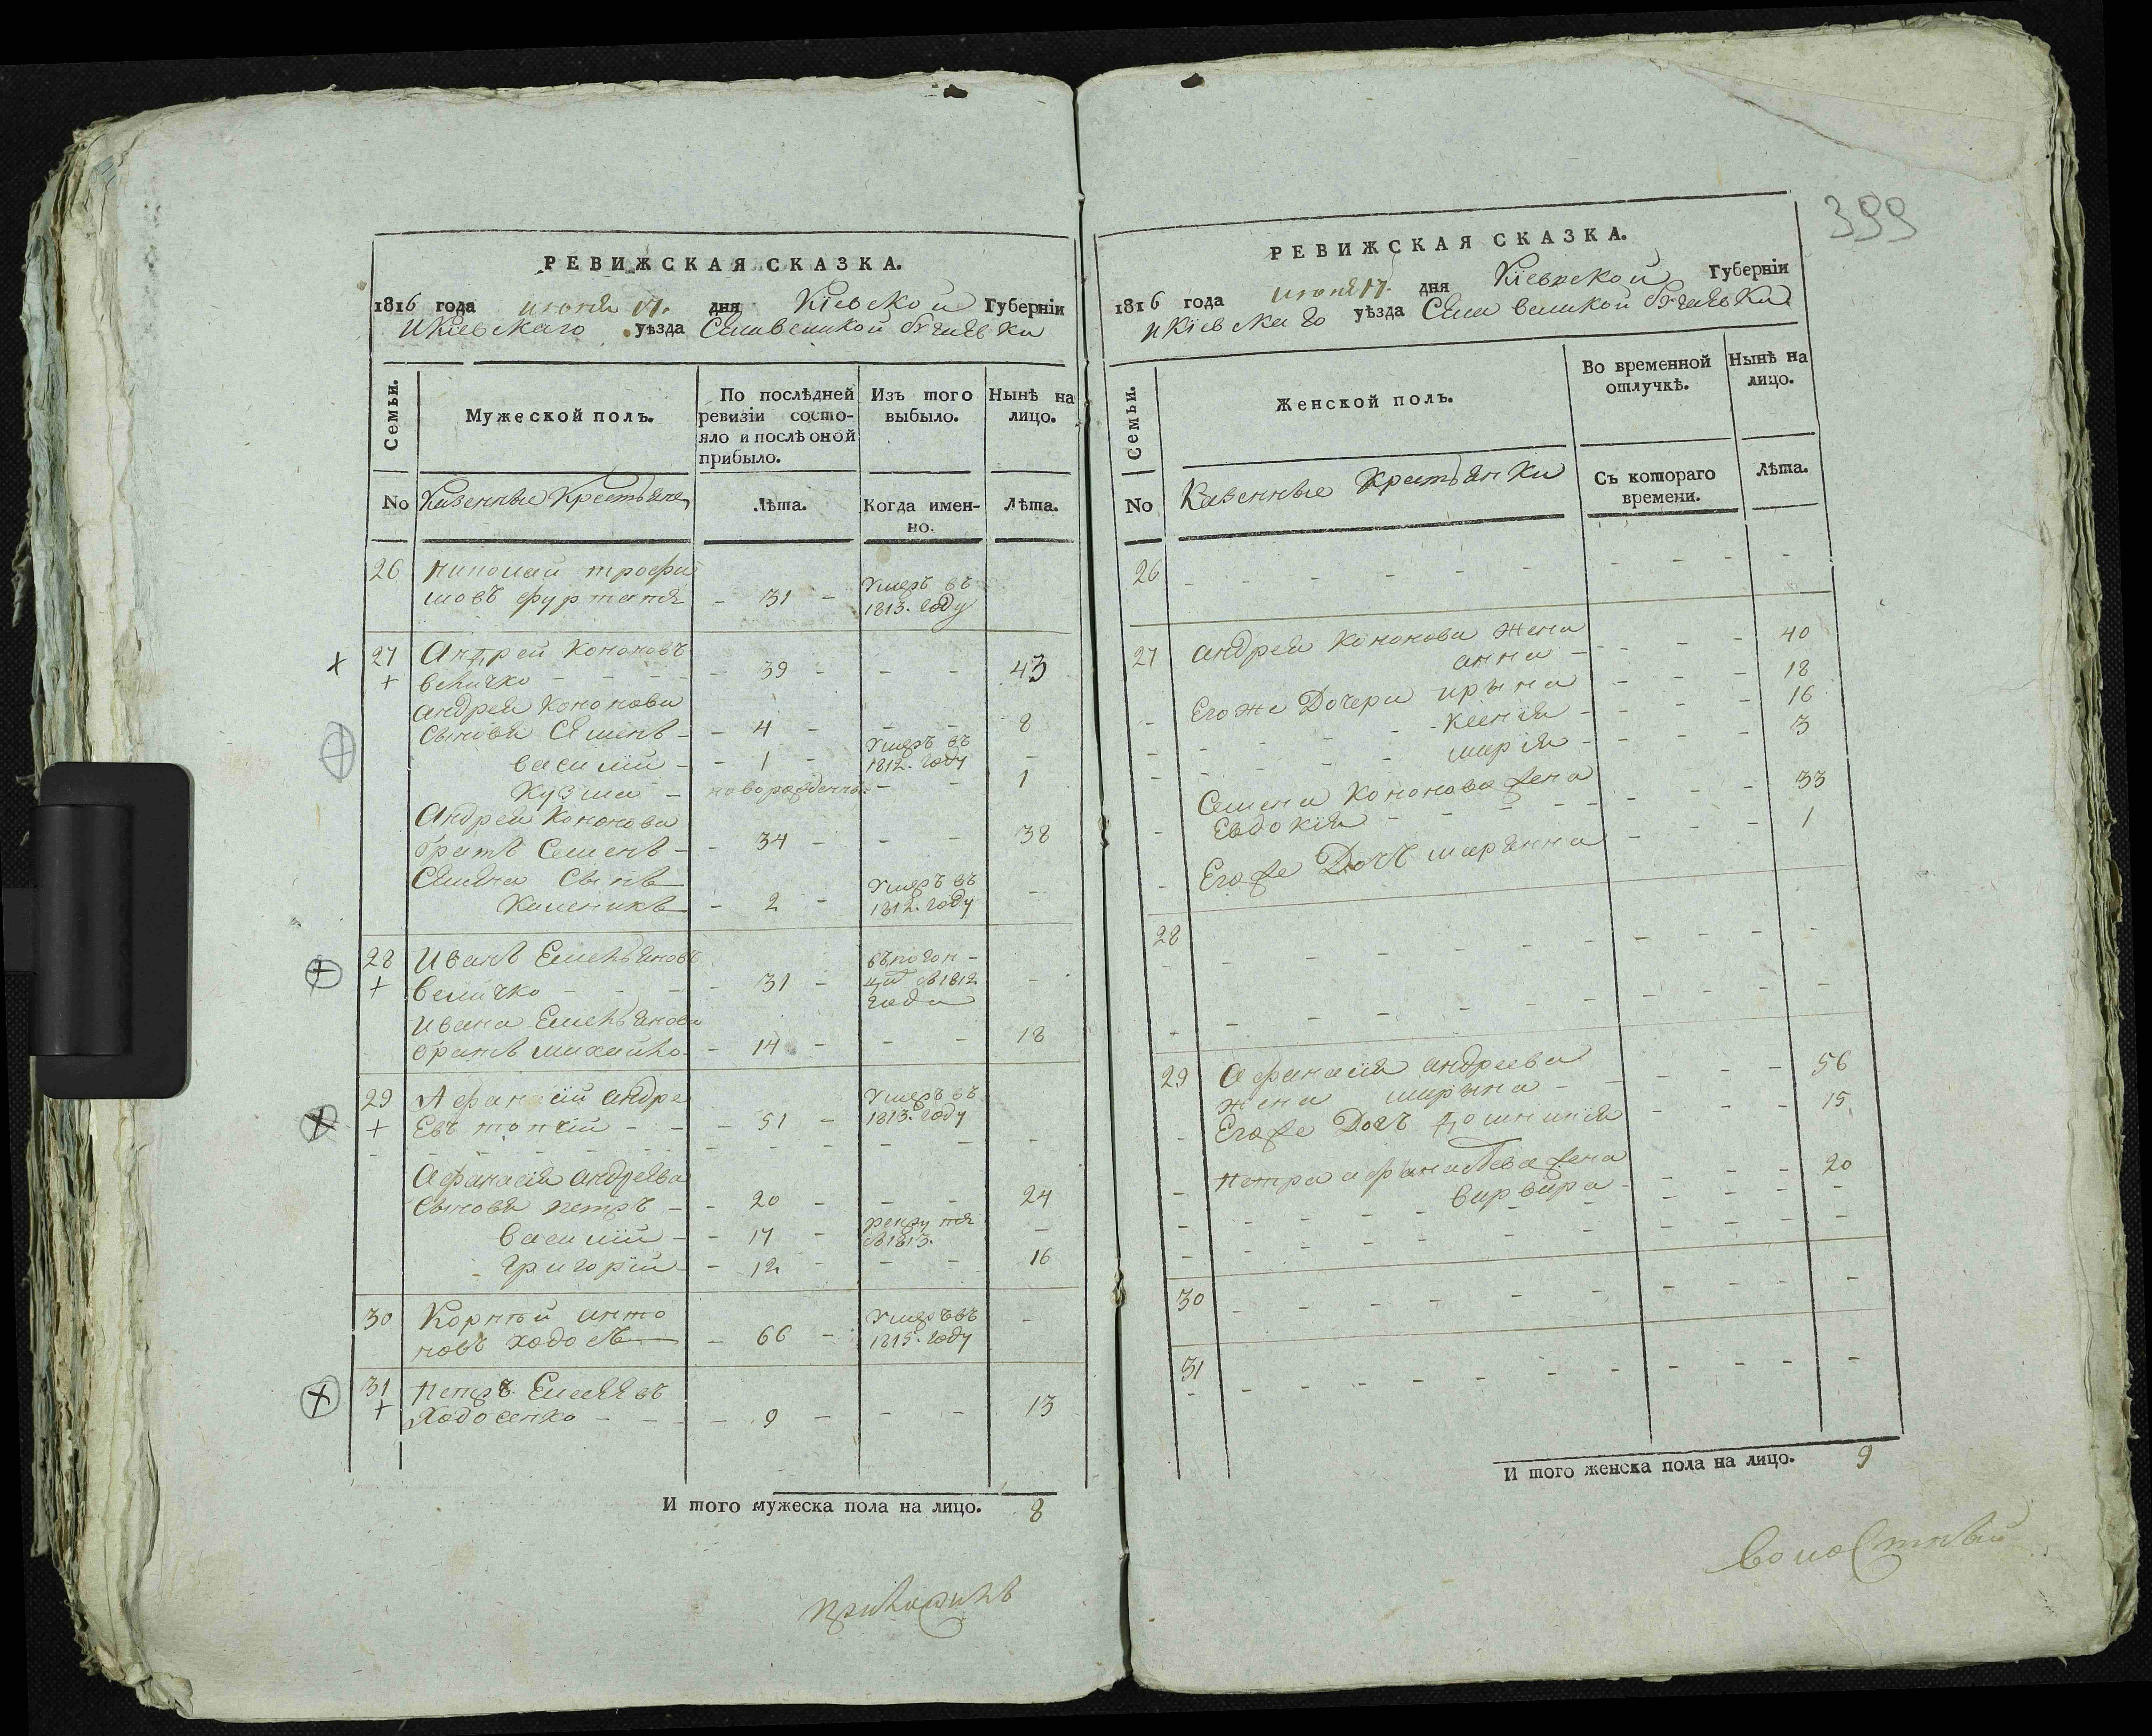 РЕВИЖСКАЯ СКАЗКА.
1816 года июня 17. дня Кіевской Губерніи
и Кіевскаго уѣзда Села Великой Бугаевки
Семьи.
Мужеской полъ.
По послѣдней ревизіи состо-
яло и послѣ оной
прибыло.
Изъ того
выбыло.
Нынѣ на
лицо.
No
Казенные Крестьяне
Лѣта.
Когда имен-
но.
Лѣта.
26 Николай трофи
мовъ - 31 - Умеръ въ
1813. году
27 Андрей Кононовъ
+ величко - 39 - - - 43
андрея Кононова
сыновя Семенъ - - 4 - - - 8
василій - - 1 - Умеръ въ
1812. году -
Кузма - новорожденный - - 1
Андрея Кононова
братъ Семенъ - - 34 - - - 38
Семена Сынъ
Каленикъ - 2 - Умеръ въ
1812. году -
28 Иванъ Емельяновъ
+ величко - - - - 31 - 1812
года -
Ивана Емельянова
братъ михайло - - 14 - - - 18
29 Афанасій андре
+ евъ топчій - - - 51 - Умеръ въ
1813. году
Афанасія андреева
сыновя петръ - - 20 - - - 24
василій - - 17 - рекру
в 1813. -
григорій - - 12 - - - 16
30 Корній анто
новъ ходосъ - 66 - Умеръ въ
1815. году -
31 петръ Елисеевъ
+ Ходосенко - - - 9 - - - 13
И того мужеска пола на лицо. 8
399
РЕВИЖСКАЯ СКАЗКА.
1816 года июня 17. дня Кіевской Губерніи
и Кіевскаго уѣзда Села великой бугаевки
Семьи.
Женской полъ.
Во временной
отлучкѣ.
Нынѣ на
лицо.
No
Казенные Крестьянки
Съ котораго
времени.
Лѣта.
26 - - - - - -
27 андрея Кононова жена
анна - - - - 40
Его же Дочери ирына - - - 18
Ксенія - - - - 16
марія - - - - 3
Семена Кононова жена
Евдокія - - - - 33
Егоже Дочъ марянна - - - 1
28 - - - - - -
29 Афанасія андреева
жена марына - - - - 56
Егоже Дочъ домникія - - - 15
петра афанасьева жена
варвара - - - - 20
30 - - - - - -
31 - - - - - -
И того женска пола на лицо. 9